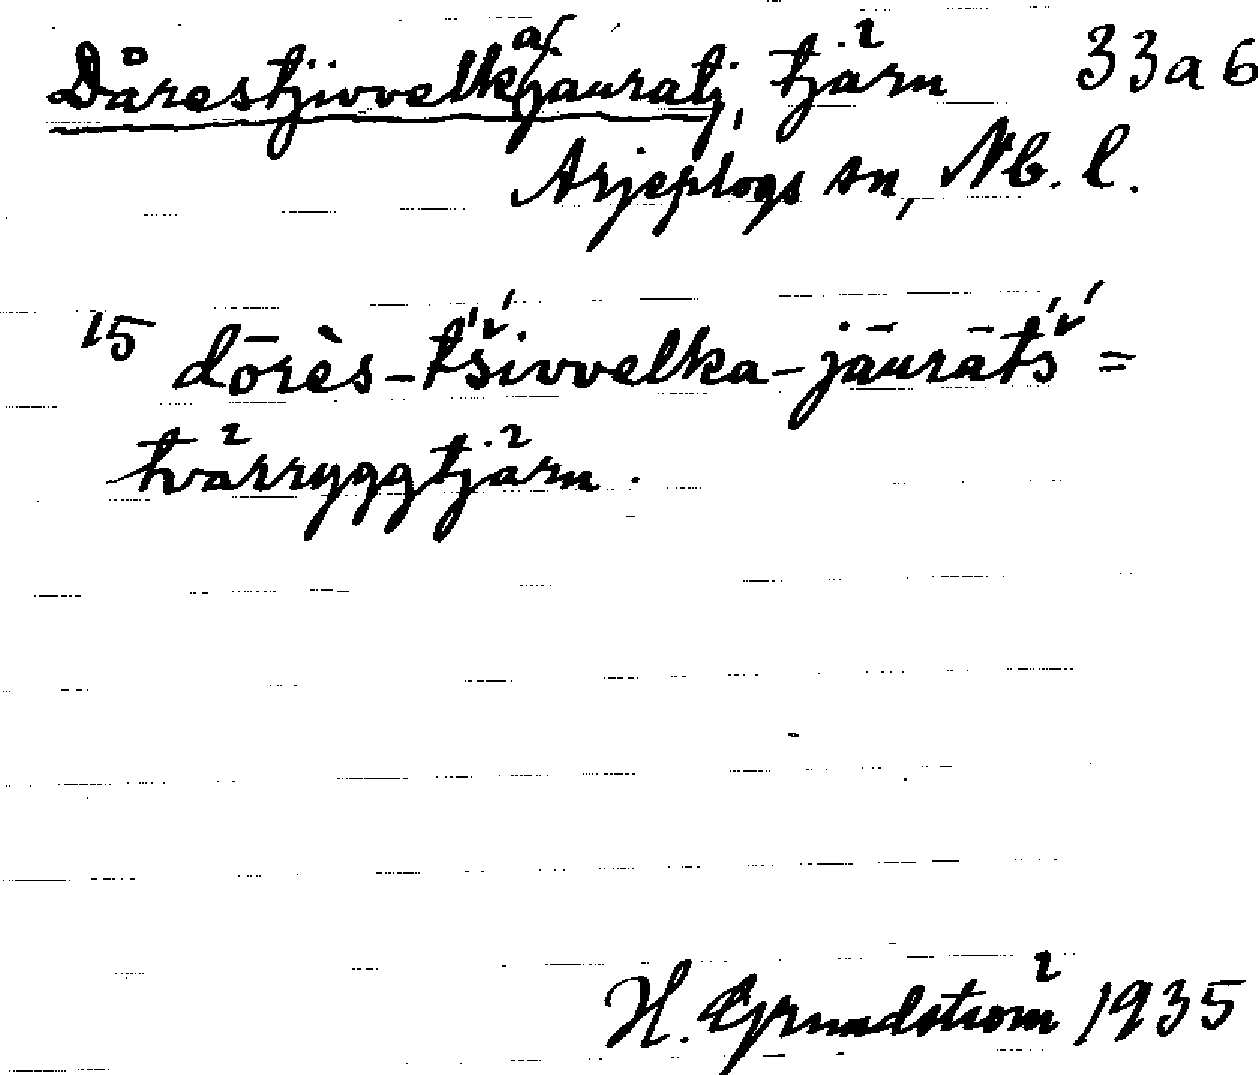 Dårestjivvelkajauratj, tjärn 33a6
Arjeplogs sn, Nb. l.
15 dōrès-t́š́ivvelka-jāurāt́š́ =
tvärryggtjärn.
H. Grundström 1935